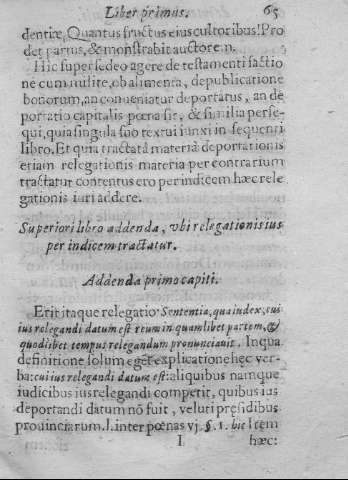 Liber primus. 65
dentire, Quantus fructus eius cultoribus! Pro
det partus, & monstrabit auctorem.
Hic supersedeo agere de testamenti factio
ne cum milite, ob alimenta, de publicatione
bonorum, an conueniatur deportatus, an de
portatio capitalis pœna sit, & similia perse-
qui, quia singula suo textui iunxi in sequenti
libro. Et quia tractatâ materiâ deportationis
etiam relegationis materia per contrarium
tractatur contentus ero per indicem hæc rele
gationis iuri addere.
Superiori libro addenda, vbi relegationis ius
per indicem tractatur.
Addenda primo capiti.
Erit itaque relegatio Sententia, qua iudex, cui
ius relegandi datum est reum in quamlibet partem, &
quodlibet tempus relegandum pronunciauit. Inqua
definitione solum eget explicatione hęc ver-
ba: cui ius relegandi datum est: aliquibus namque
iudicibus ius relegandi competit, quibus ius
deportandi datum nō fuit, veluti pręsidibus
prouinciarum. l. inter pœnas vj. §. 1. hic Item
I hæc: